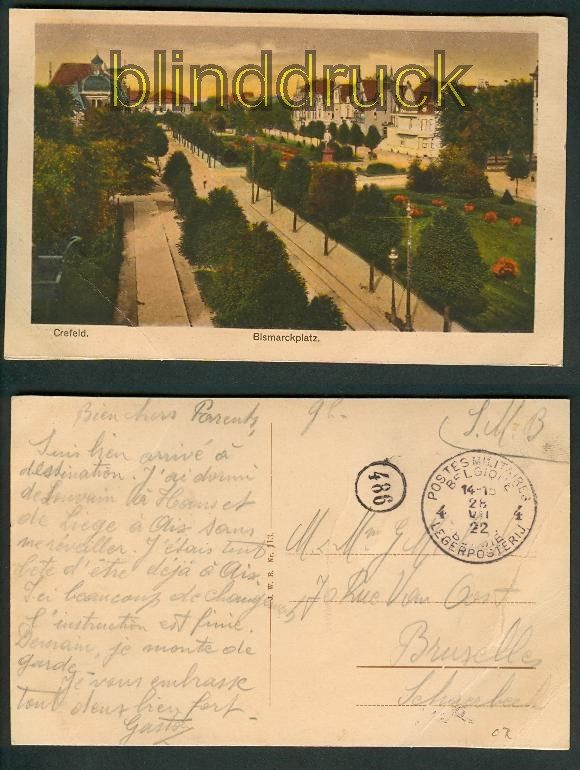 blinddruck
Crefeld.
Bismarckplatz.
Bien chers Parents 9h.
Suis bien arrivé à
destination. J'ai dormi
de Louvain à Haans et
de Liège à Aix sans
me réveiller. J'étais tout
bête d'être déjà à Aix.
Ici beaucoup de changements
l'instruction est finie.
Demain, je monte de
garde.
Je vous embrasse
tout deux bien fort
Gaston
J. W. B. Nr. 113.
S.M.B
486
POSTES MILITAIRES
BELGIQUE
14-15
28
VII
22
4 4
BELGIË
LEGERPOSTERIJ
M. Mme G
70 Rue Van Oost
Bruxelles
Schaerbeek